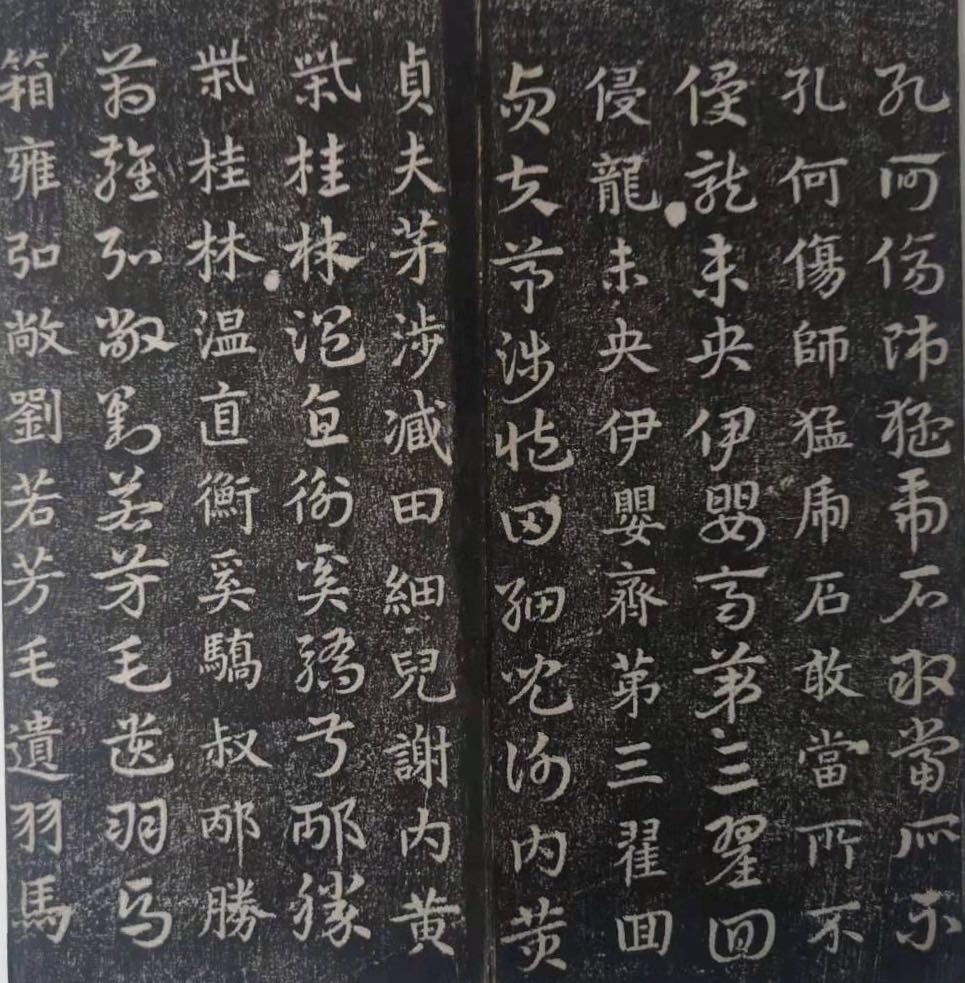 孔何傷師猛虎石敢當所不
孔何傷師猛虎石敢當所不
侵龍未央伊嬰齊第三翟回
侵龍未央伊嬰齊苐三翟囬
貞夫茅涉臧田細兒謝内黄
貞夫茅涉臧田細兒謝内黄
柴桂林温直衡奚驕叔邴勝
柴桂林温直衡奚驕叔邴勝
箱雍弘敞劉若芳毛遺羽馬
箱雍弘敞劉若芳毛遺羽馬